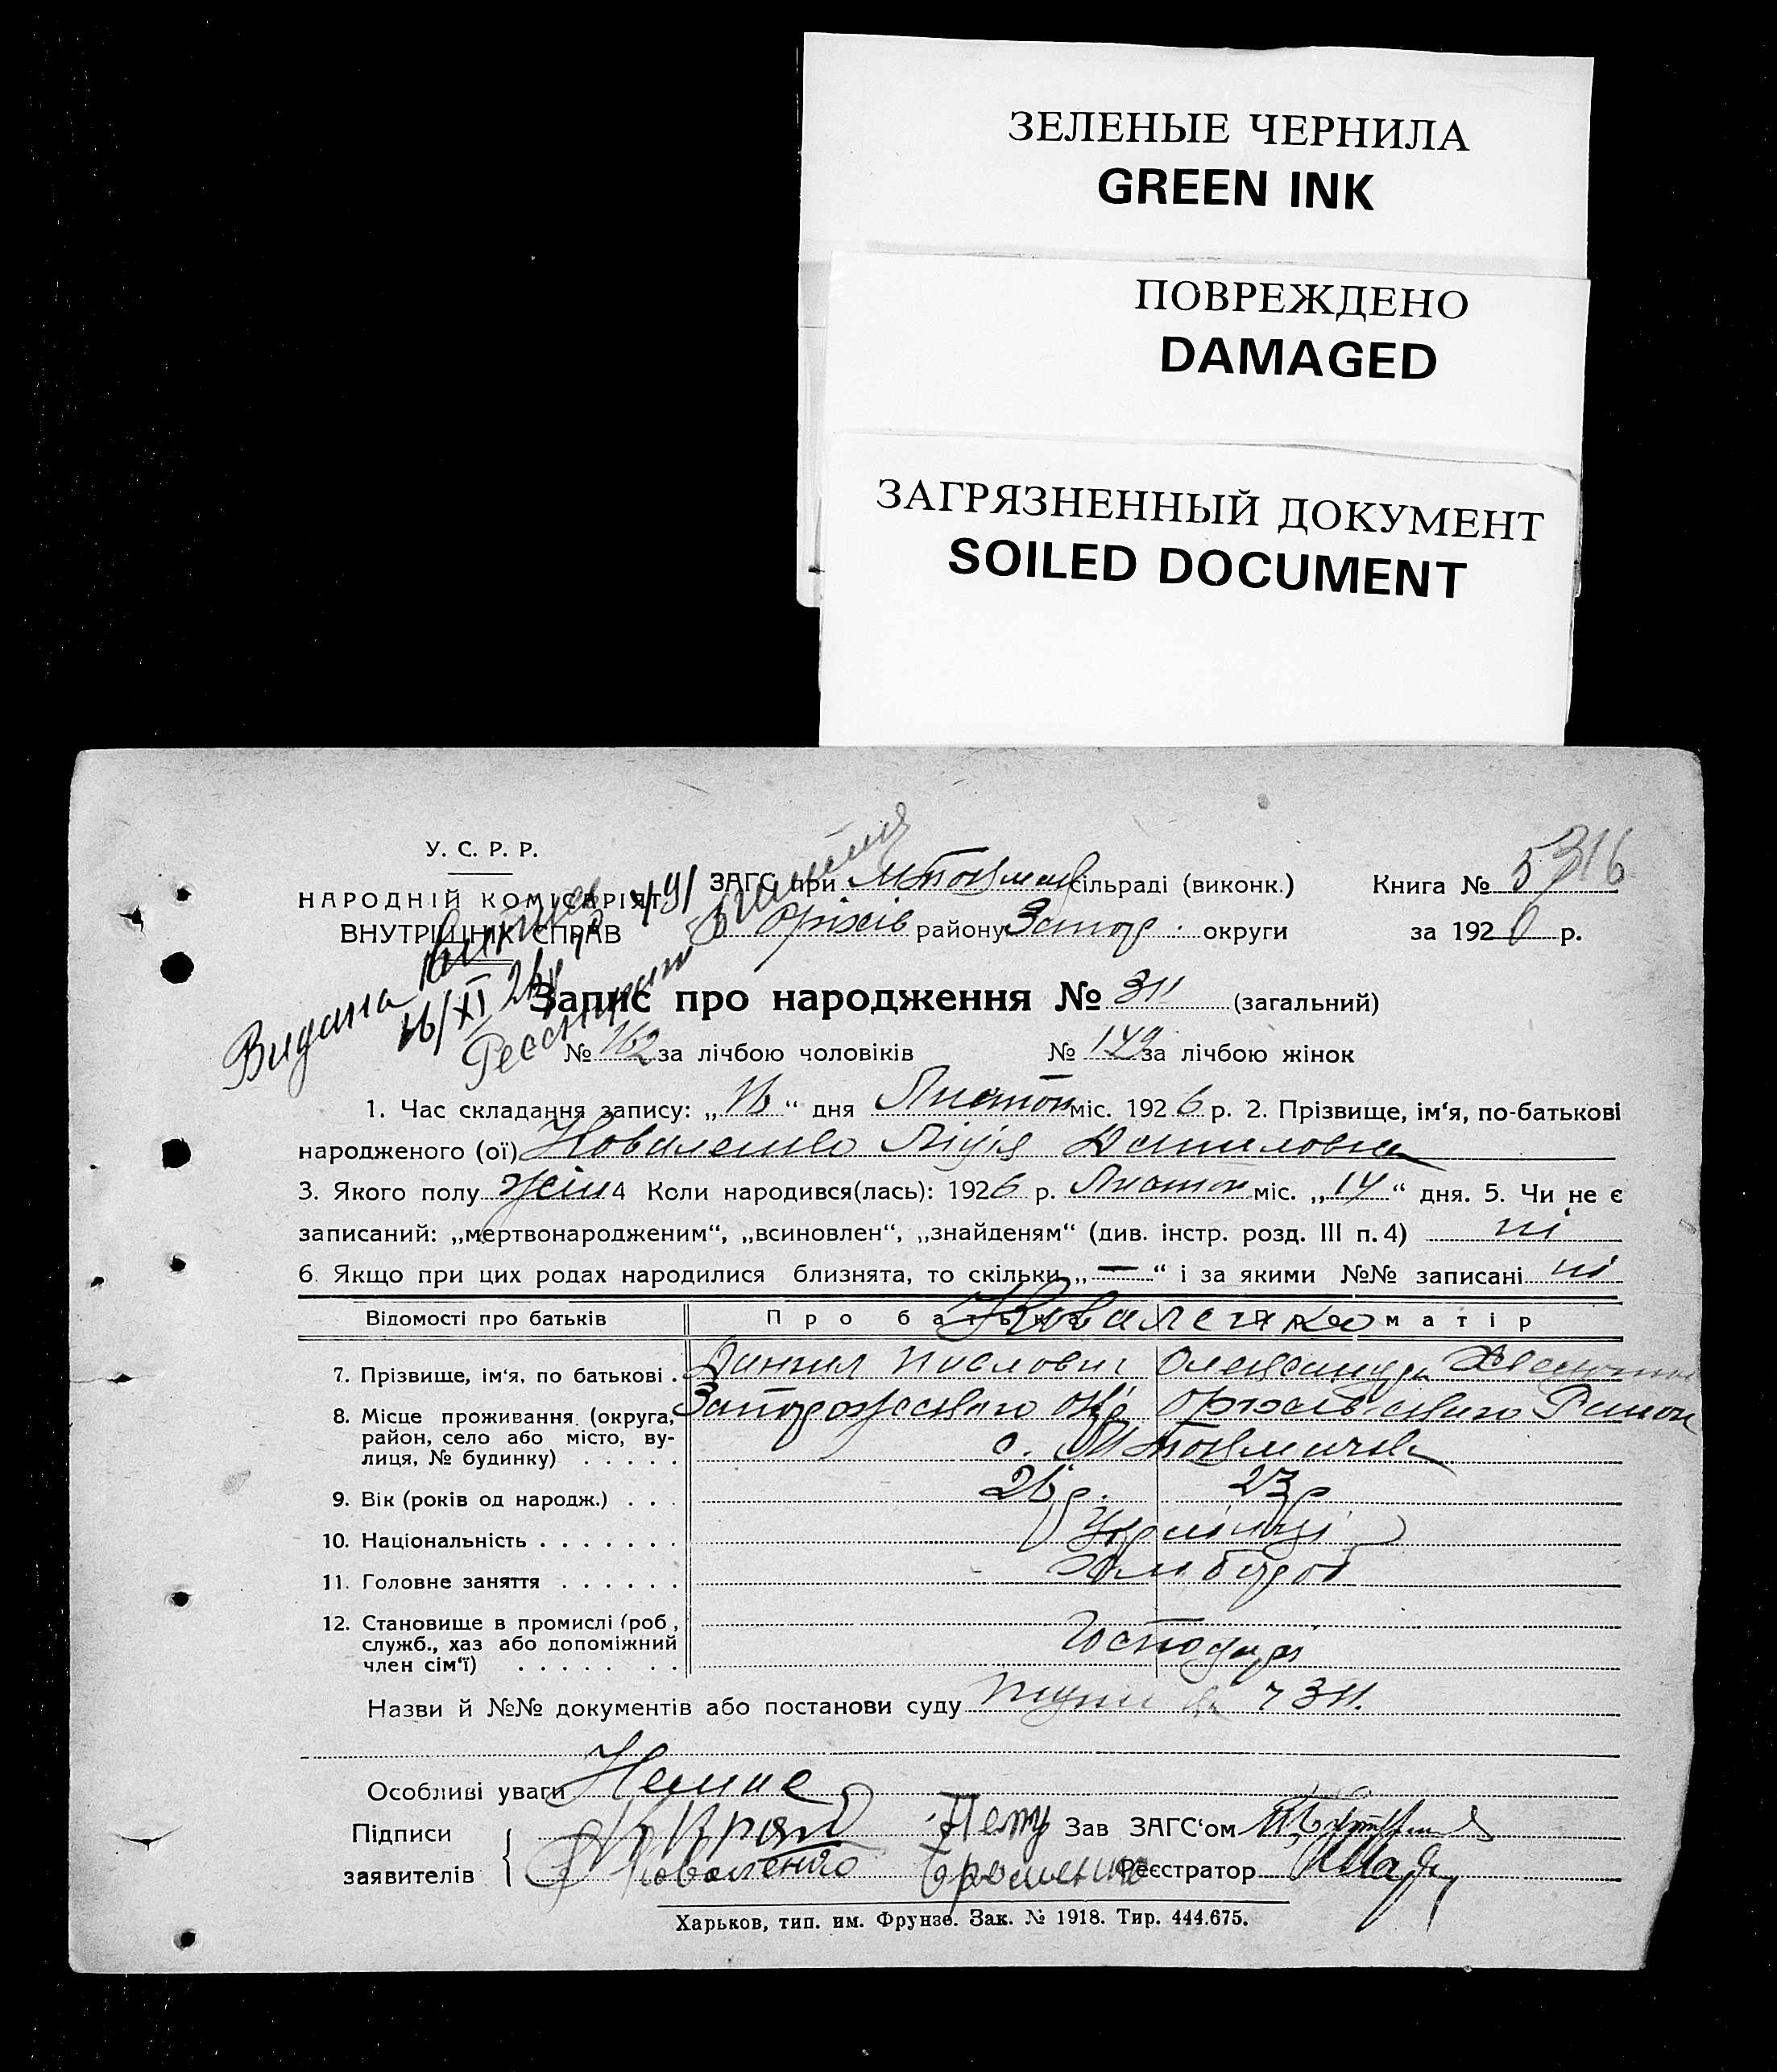 ЗЕЛЕНЫЕ ЧЕРНИЛА
GREEN INK
ПОВРЕЖДЕНО
DAMAGED
ЗАГРЯЗНЕННЫЙ ДОКУМЕНТ
SOILED DOCUMENT
У. С. Р. Р.
НАРОДНІЙ КОМІСАРІЯТ
ВНУТРІШНІХ СПРАВ
ЗАГС при сільраді (виконк.)
Книга № 5
316
Оріхів району Запор. округи
за 1926 р.
Видана
16/XI 26 р
Запис про народження № 311 (загальний)
№ 162 за лічбою чоловіків № 149 за лічбою жінок
1. Час складання запису: „16“ дня Листоп міс. 1926 р. 2. Прізвище, ім‘я, по-батькові
народженого (ої) Коваленко Лідія Даниловна
3. Якого полу жін 4 Коли народився(лась): 1926 р. Листоп міс. „14“ дня. 5. Чи не є
записаний: „мертвонародженим“, „всиновлен“, „знайденям“ (див. інстр. розд. III п. 4) ні
6. Якщо при цих родах народилися близнята, то скільки „—“ і за якими №№ записані ні
Відомості про батьків Про батька Про матір
Коваленко
7. Прізвище, ім‘я, по батькові . Данил Олександра
8. Місце проживання (округа, Запорожського окр Оріхівського Район
район, село або місто, ву-
лиця, № будинку) . . . . . с.
9. Вік (років од народж.) . . . 26 р. 23 р
10. Національність . . . . . . . Українці
11. Головне заняття . . . . . . Хлібороб
12. Становище в промислі (роб.,
служб., хаз або допоміжний
член сім‘ї) . . . . . . . Господарі
Назви й №№ документів або постанови суду 311.
Особливі уваги Немае
Підписи
заявителів
Коваленко
Зав ЗАГС‘ом
Реєстратор
Харьков, тип. им. Фрунзе. Зак. № 1918. Тир. 444.675.